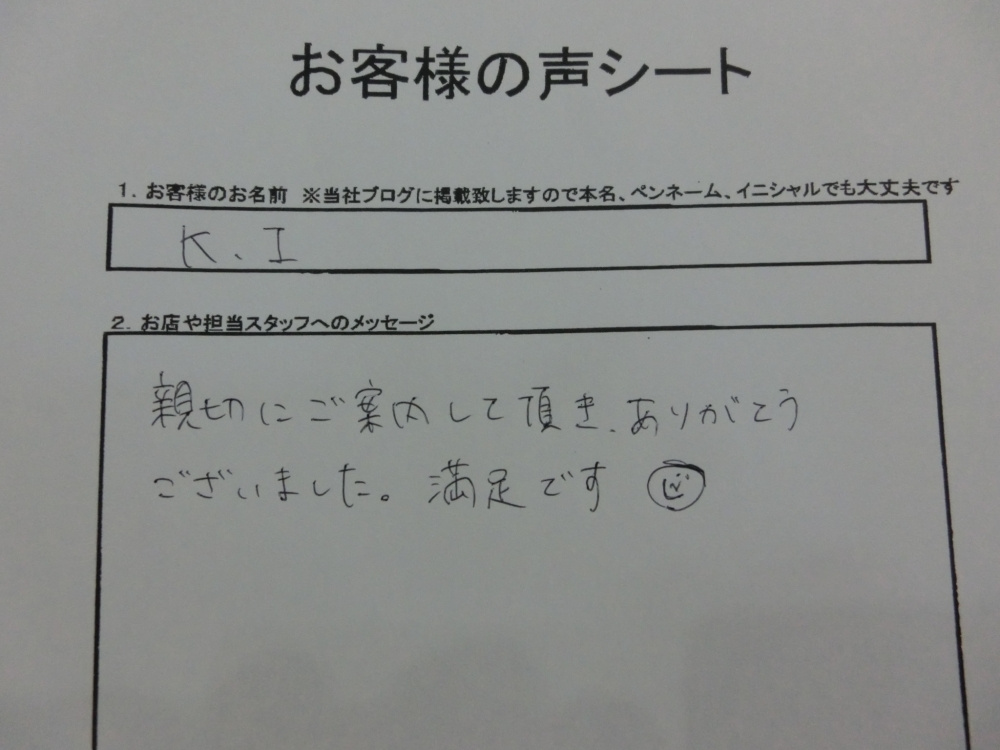 お客様の声シート
1. お客様のお名前 ※当社ブログに掲載致しますので本名、ペンネーム、イニシャルでも大丈夫です
K.I
2. お店や担当スタッフへのメッセージ
親切にご案内して頂き、ありがとう
ございました。満足です